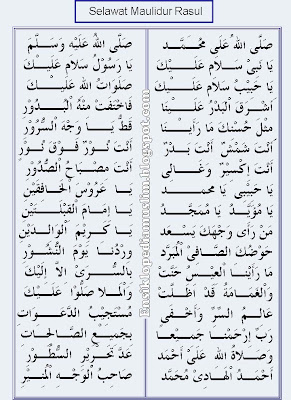 Selawat Maulidur Rasul
صَلَّى اللهُ عَلَى مُحَمَّد صَلَّى اللهُ عَلَيْهِ وَسَلَّمَ
يَا نَبِىْ سَلَام عَلَيْكَ يَا رَسُوْلْ سَلَام عَلَيْكَ
يَا حَبِيْبْ سَلَام عَلَيْكَ صَلَوَاتُ اللهْ عَلَيْكَ
اَشْرَقَ الْبَدْرُ عَلَيْنَا فَاخْتَفَتْ مِنْهُ الْبُدُوْرُ
مِثْلَ حُسْنِكَ مَا رَاَيْنَا قَطُّ يَا وَجْهَ السُّرُوْرِ
اَنْتَ شَمْسٌ اَنْتَ بَدْرٌ اَنْتَ نُوْرٌ فَوْقَ نُوْرِ
اَنْتَ اِكْسِيْرٌ وَغَالِى اَنْتَ مِصْبَاحُ الصُّدُوْرِ
يَا حَبِيْبِى يَا مُحَمَّد يَا عَرُوْسَ الْخَافِقَيْنِ
يَا مُؤَيَّدْ يَا مُمَجَّدْ يَا اِمَامَ الْقِبْلَتَيْنِ
مَنْ رَاٰى وَجْهَكَ يَسْعَدْ يَا كَرِيْمَ الْوَالِدَيْنِ
حَوْضُكَ الصَّافِى الْمُبَرَّدْ وِرْدُنَا يَوْمَ النُّشُوْرِ
مَا رَاَيْنَا الْعِيْسَ حَنَّتْ بِالسُّرَىٰ اِلَّا اِلَيْكَ
وَالْغَمَامَةْ قَدْ اَظَلَّتْ وَالْمَلَا صَلُّوْا عَلَيْكَ
عَالِمُ السِّرِّ وَاَخْفَى مُسْتَجِيْبُ الدَّعَوَاتِ
رَبِّ اِرْحَمْنَا جَمِيْعًا بِجَمِيْعِ الصَّالِحَاتِ
وَصَلَاةُ اللهِ عَلَىْ اَحْمَدْ عَدَّ تَحْرِيْرِ السُّطُوْرِ
اَحْمَدُ الْهَادِىْ مُحَمَّدْ صَاحِبُ الْوَجْهِ الْمُنِيْرِ
Ensiklopediamuslim.blogspot.com